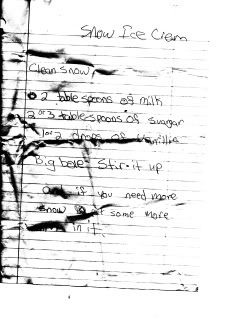 Snow Ice Cream
Clean snow,
2 table spoons of milk
2 or 3 tablespoons of suagar
1 or 2 drops of Vanillia
Big bowe Stir it up
if you need more
snow some more
in it.